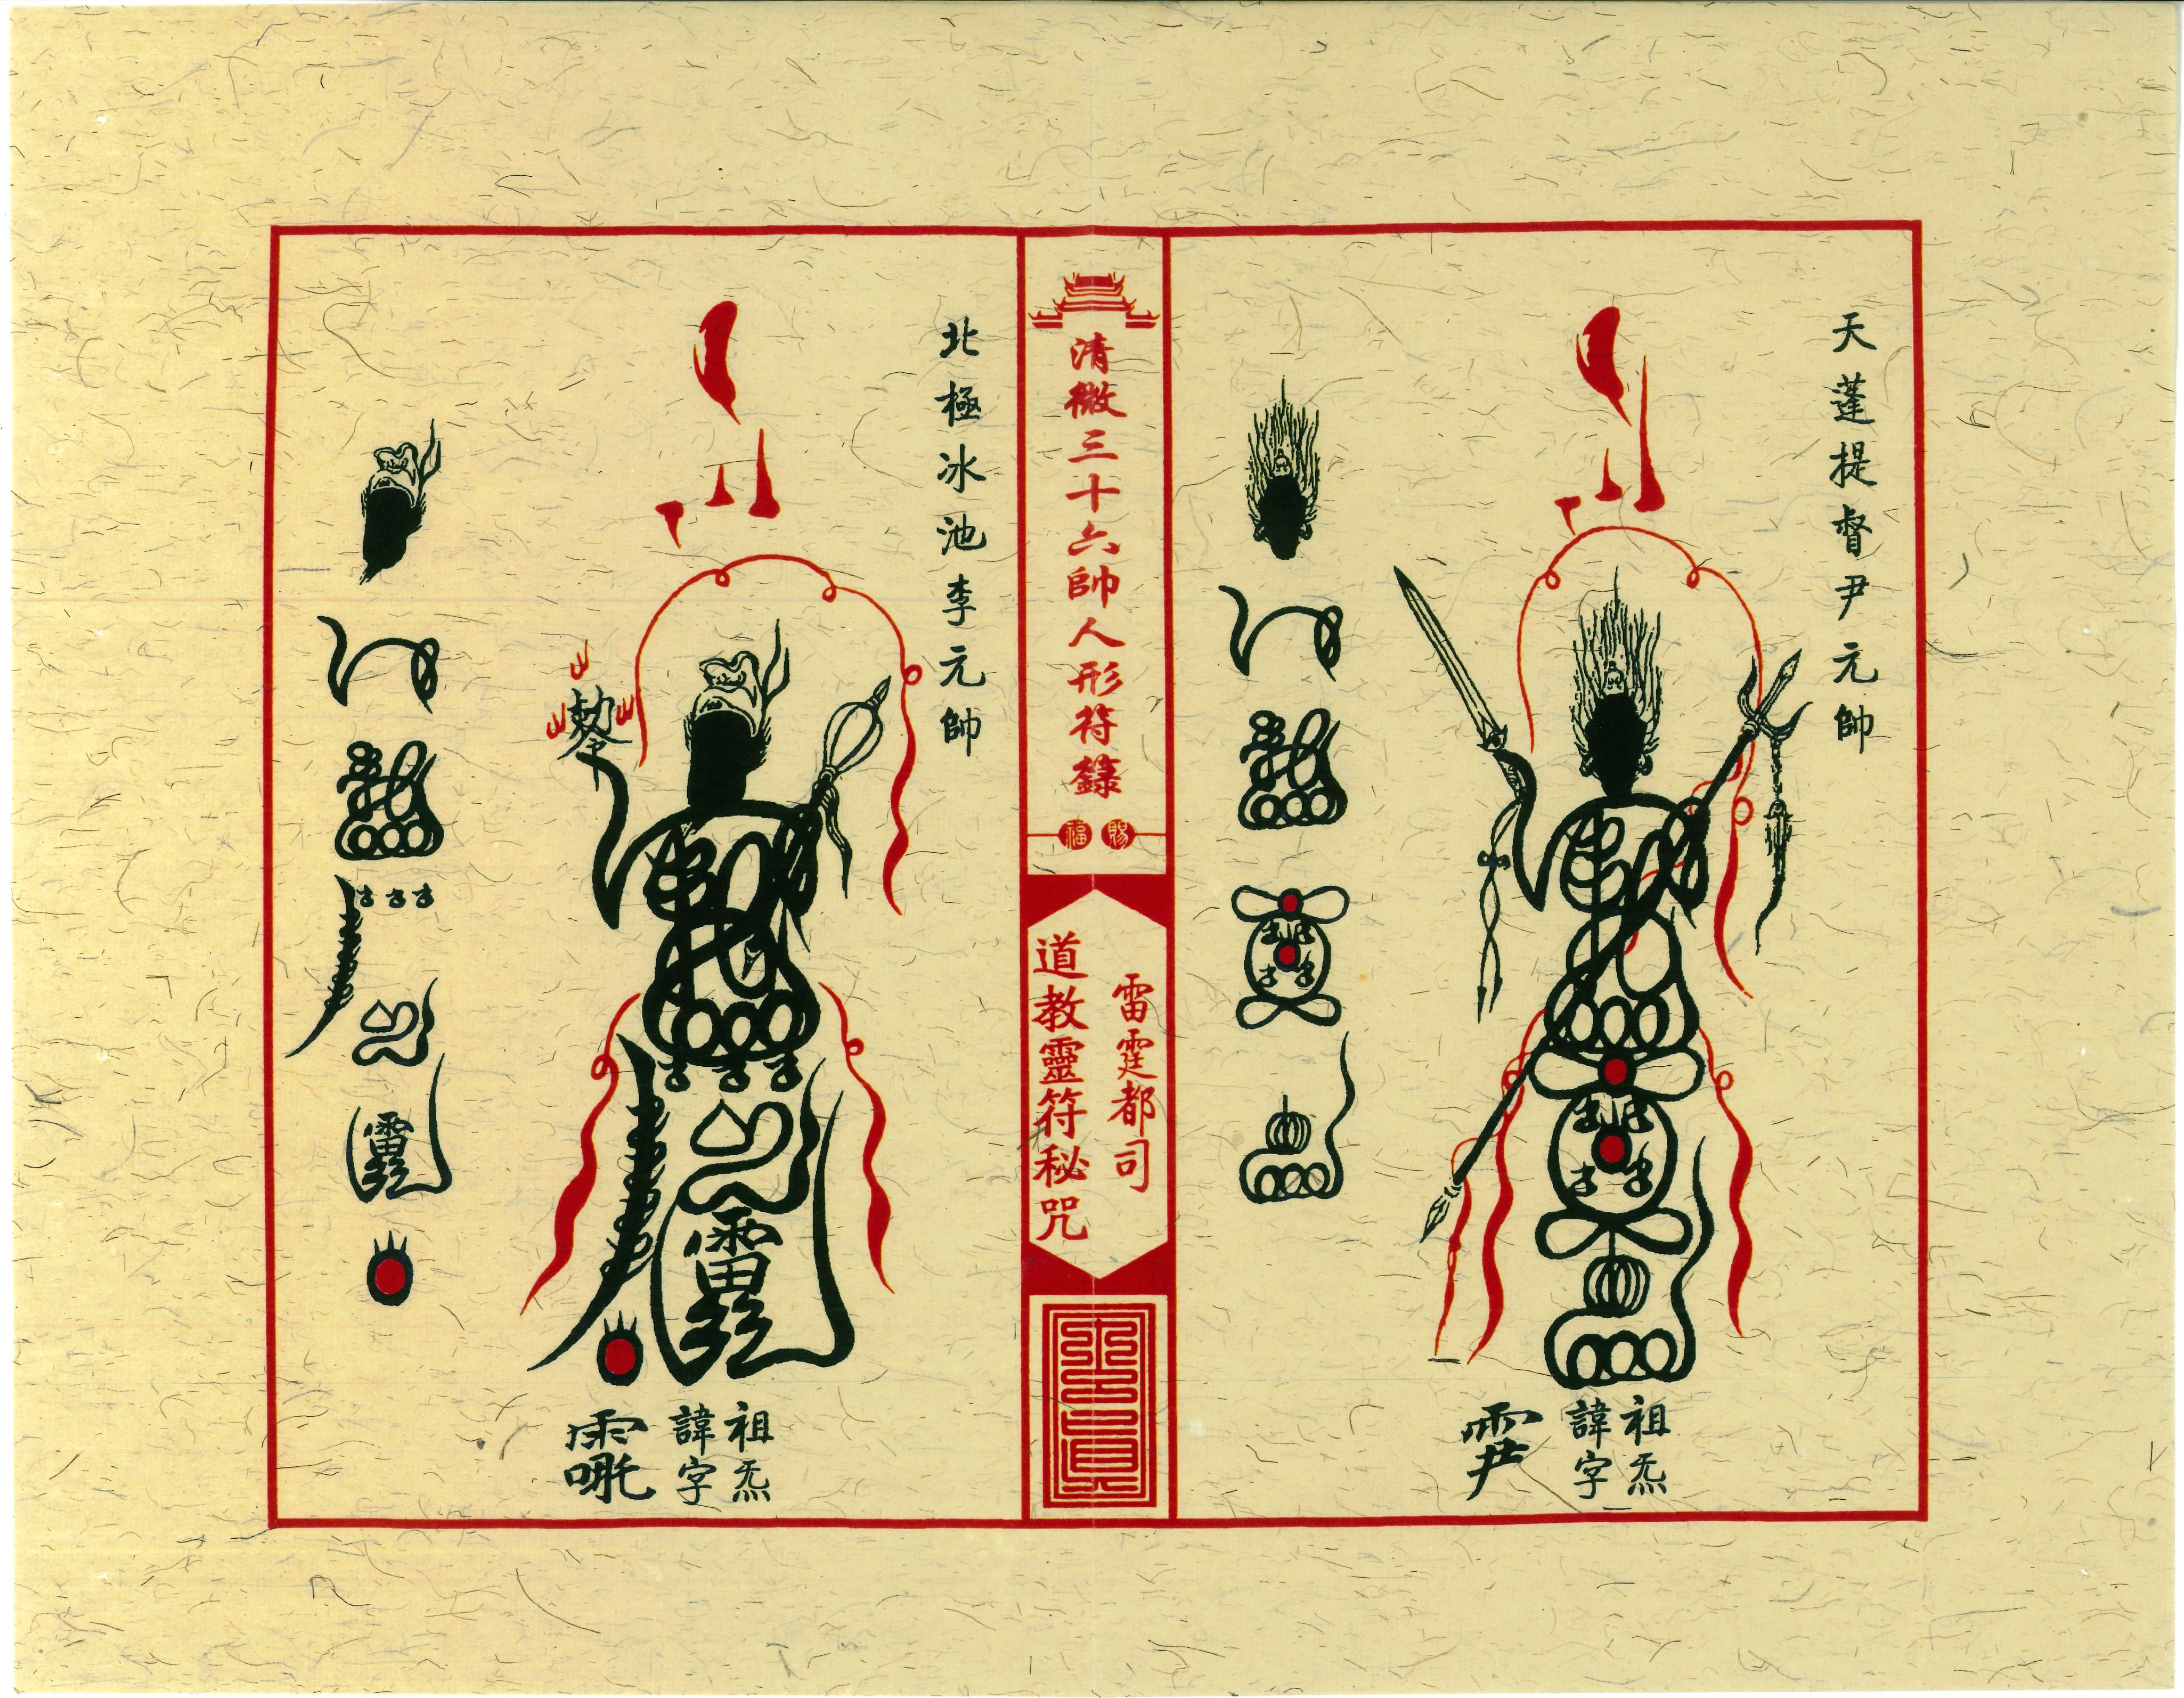 天蓬提督尹元帥
祖炁
諱字
清微三十六帥人形符籙
賜福
雷霆都司
道教靈符秘咒
北極冰池李元帥
祖炁
諱字